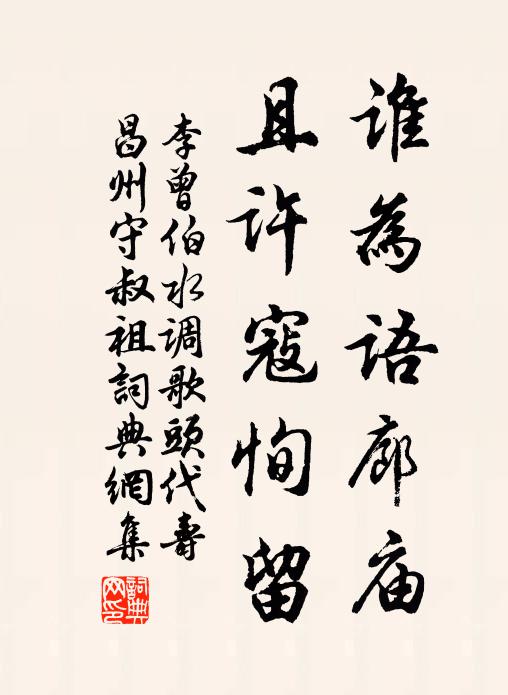 谁為語廊庙
且許寇恂留
李曾伯水调歌頭代壽
昌州守叔祖詞典網集
詞典网印